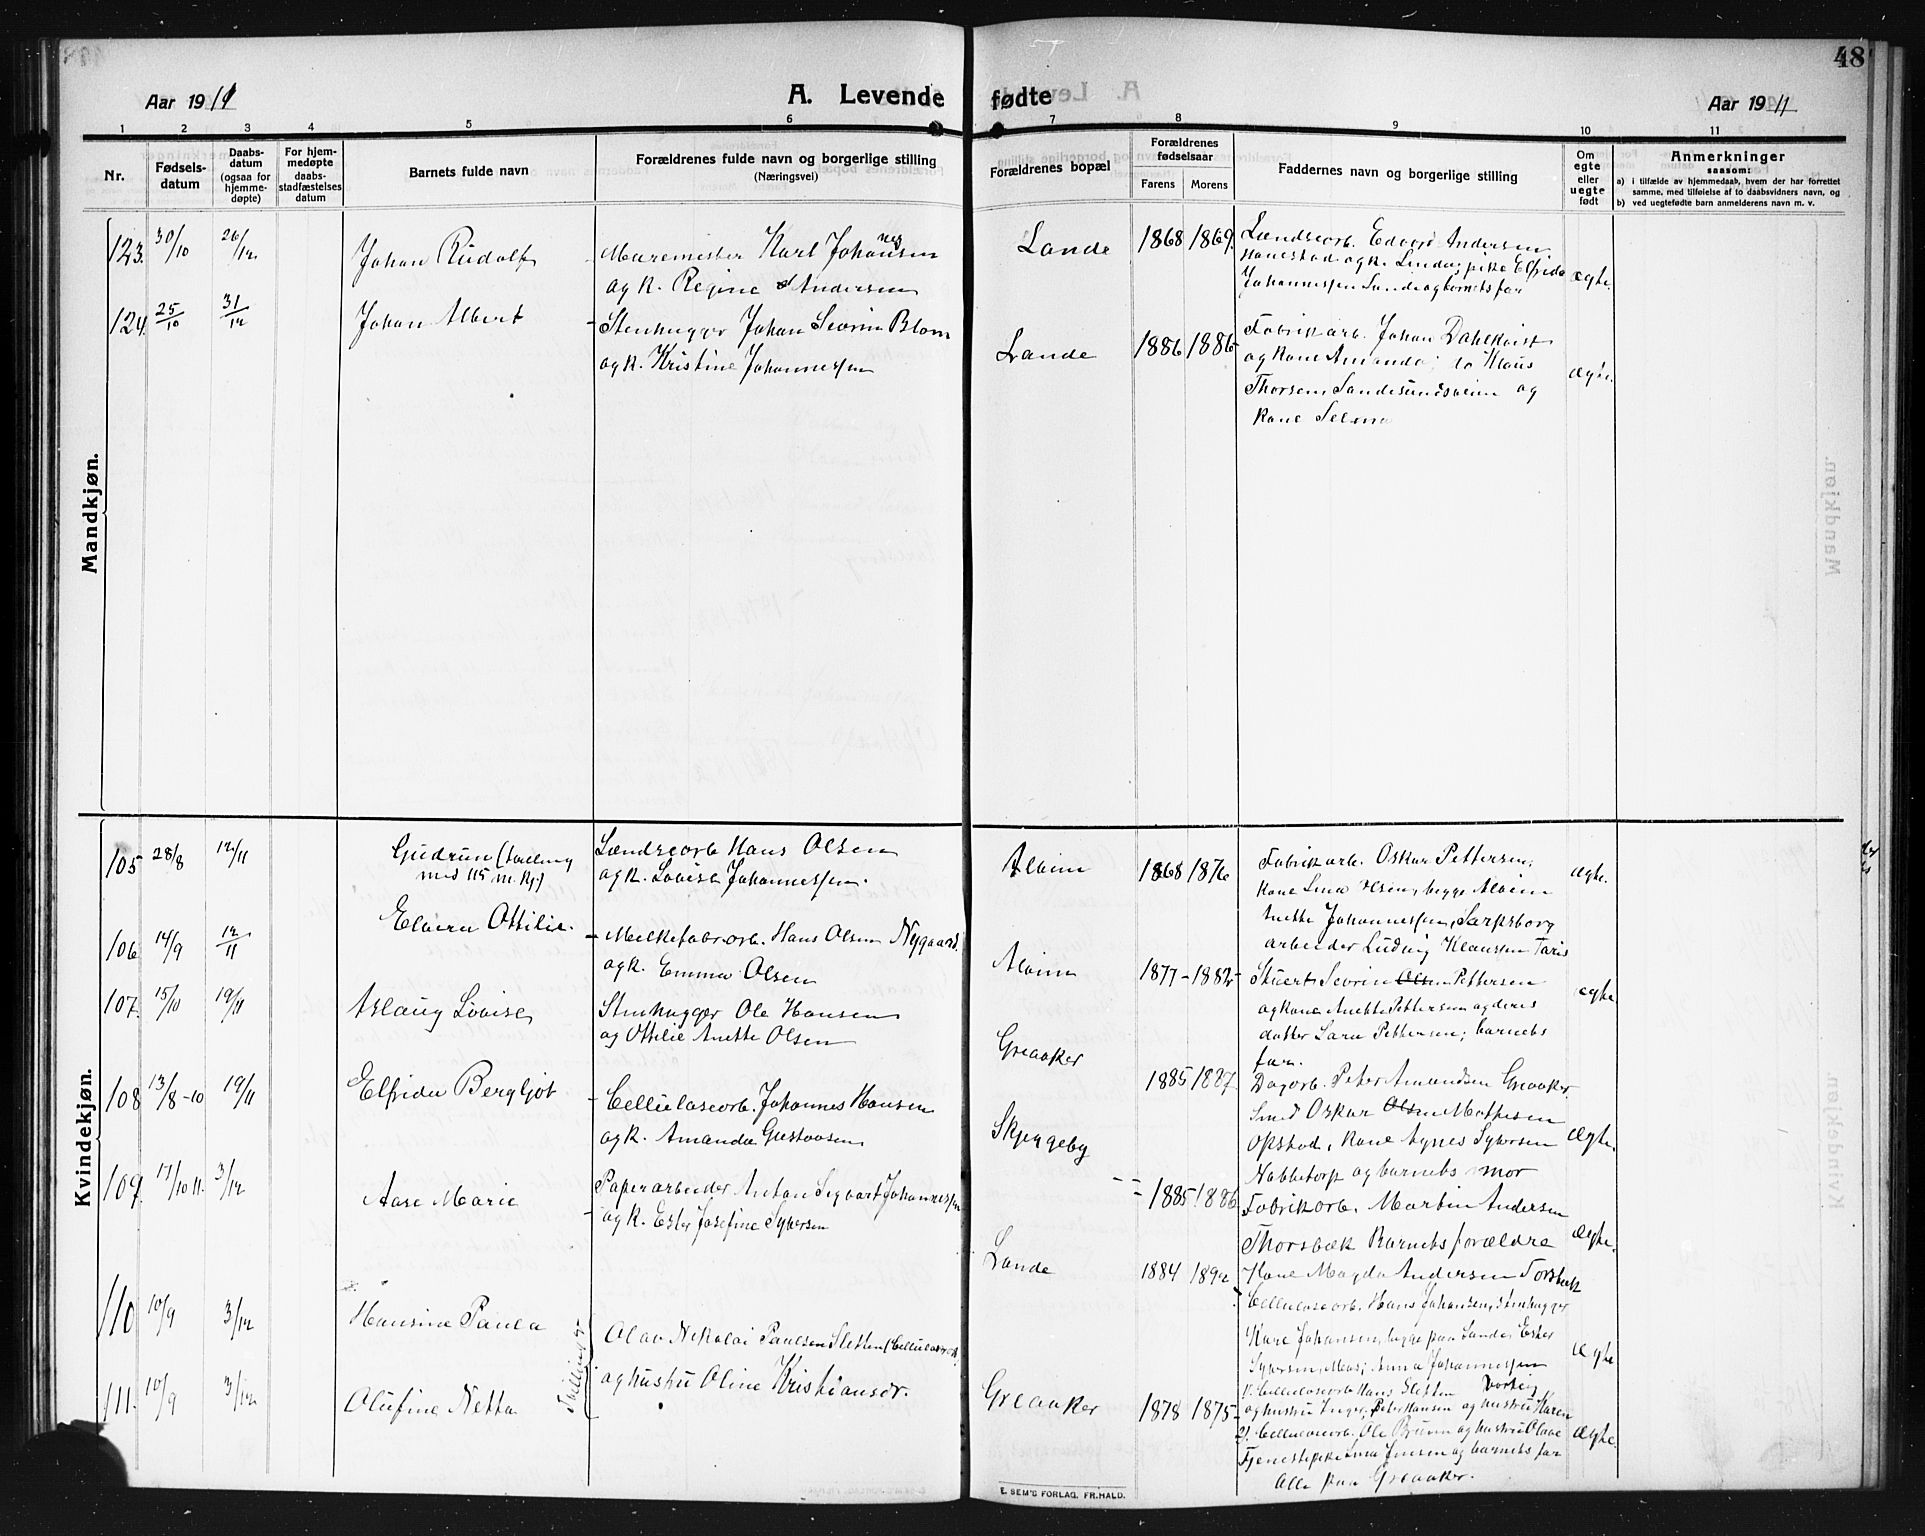 48
Aar 1911
A. Levende
fødte
Aar 1911
1 2 3 4 5 6 7 8 9 10 11
Nr.
Fødsels-
datum
Daabs-
datum
(ogsaa for
hjemme-
døpte)
For hjem-
medøpte
daabs-
stadfæstelses
datum
Barnets fulde navn
Forældrenes fulde navn og borgerlige stilling
(Næringsvei)
Forældrenes bopæl
Forældrenes
fødselsaar
Farens
Morens
Faddernes navn og borgerlige stilling
Om
egte
eller
uegte
født
Anmerkninger
saasom:
a) i tilfælde av hjemmedaab, hvem der har forrettet
samme, med tilføielse af to daabsvidners navn, og
b) ved uegtefødte barn anmelderens navn m. v.
Mandkjøn.
123. 30/10 26/12 Johan Rudolf
Muremester Karl Johannesen
og k. Regine Andersen
Lande 1868 1869.
Landsearb. Edvard Andersen
Hanestad og k. Linda; pike Elfrida
Johannessen Lande og barnets far
ægte.
124. 25/10 31/12 Johan Albert
Stenhugger Johan Severin Blom
og k. Kristine Johannessen
Lande 1886 1886
Fabrikarb. Johan Dahlkvist
og kone Amanda; Klaus
Thorsen, Sandesundsveien og
kone Selma
ægte.
Kvindekjøn.
105 28/8 12/11 Gudrun (tvilling
med 115 m. kj.)
Hans Olsen
og k. Lovise Johannessen.
Alvim 1868 1876
Fabrikarb. Oskar Pettersen;
kone Lina Olsen, begge Alvim
Anette Johannessen, Sarpsborg
arbeider Ludvig Klaussen
ægte.
106 14/9 12/11 Elvira Ottilie.
Melkefabr.arb. Hans Olsen Nygaard.
og k. Emma Olsen
Alvim 1877 - 1882
Stuert Severin Pettersen
og kone Anette Pettersen og deres
datter Sara Pettersen; barnets
far.
ægte
107. 15/10 19/11 Aslaug Lovise
Stenhugger Ole Hansen
og Ottilie Anette Olsen
Greaaker
1885 1887.
Dagarb. Peter Amandsen Greaaker
Smed Oskar Mathisen
Opstad, kone Agnes Syversen
Nabbetorp og barnets mor
ægte.
108 13/8-10 19/11 Elfrida Bergljot
Cellulosearb. Johannes Hansen
og k. Amanda Gustavsen
Skjeggeby
1885 1886
Fabrikarb. Martin Andersen
Thorsbæk Barnets forældre
Kone Magda Andersen Torsbæk
ægte.
109. 17/10 11. 3/12 Aase Marie
Papirarbeider Anton Sigvart Johannessen
og k. Ester Josefine Syversen
Lande
1884 1892
Cellulosearb. Hans Johansen, stenhugger
Kare Johansen, begge paa Lande, Ester
Syversen, Moss; Anna Johannessen
ægte
110 10/9 3/12 Hansine Paula
111. 10/9 3/12 Olufine Netta
Tvillinger
Olav Nikolai Paulsen Sletten (Cellulosearb.
og hustru Oline Kristiansdr.
Greaaker 1878 1875
1. Cellulosearb. Hans Sletten Varteig
og hustru Inger; Peter Hansen og hustru Karen
2). Cellulosearb. Ole Bruun og hustru Olave
Tjenestepike Lina Jensen og barnets far
Alle paa Greaaker.
ægte.
E. SEM'S FORLAG, FR.HALD.